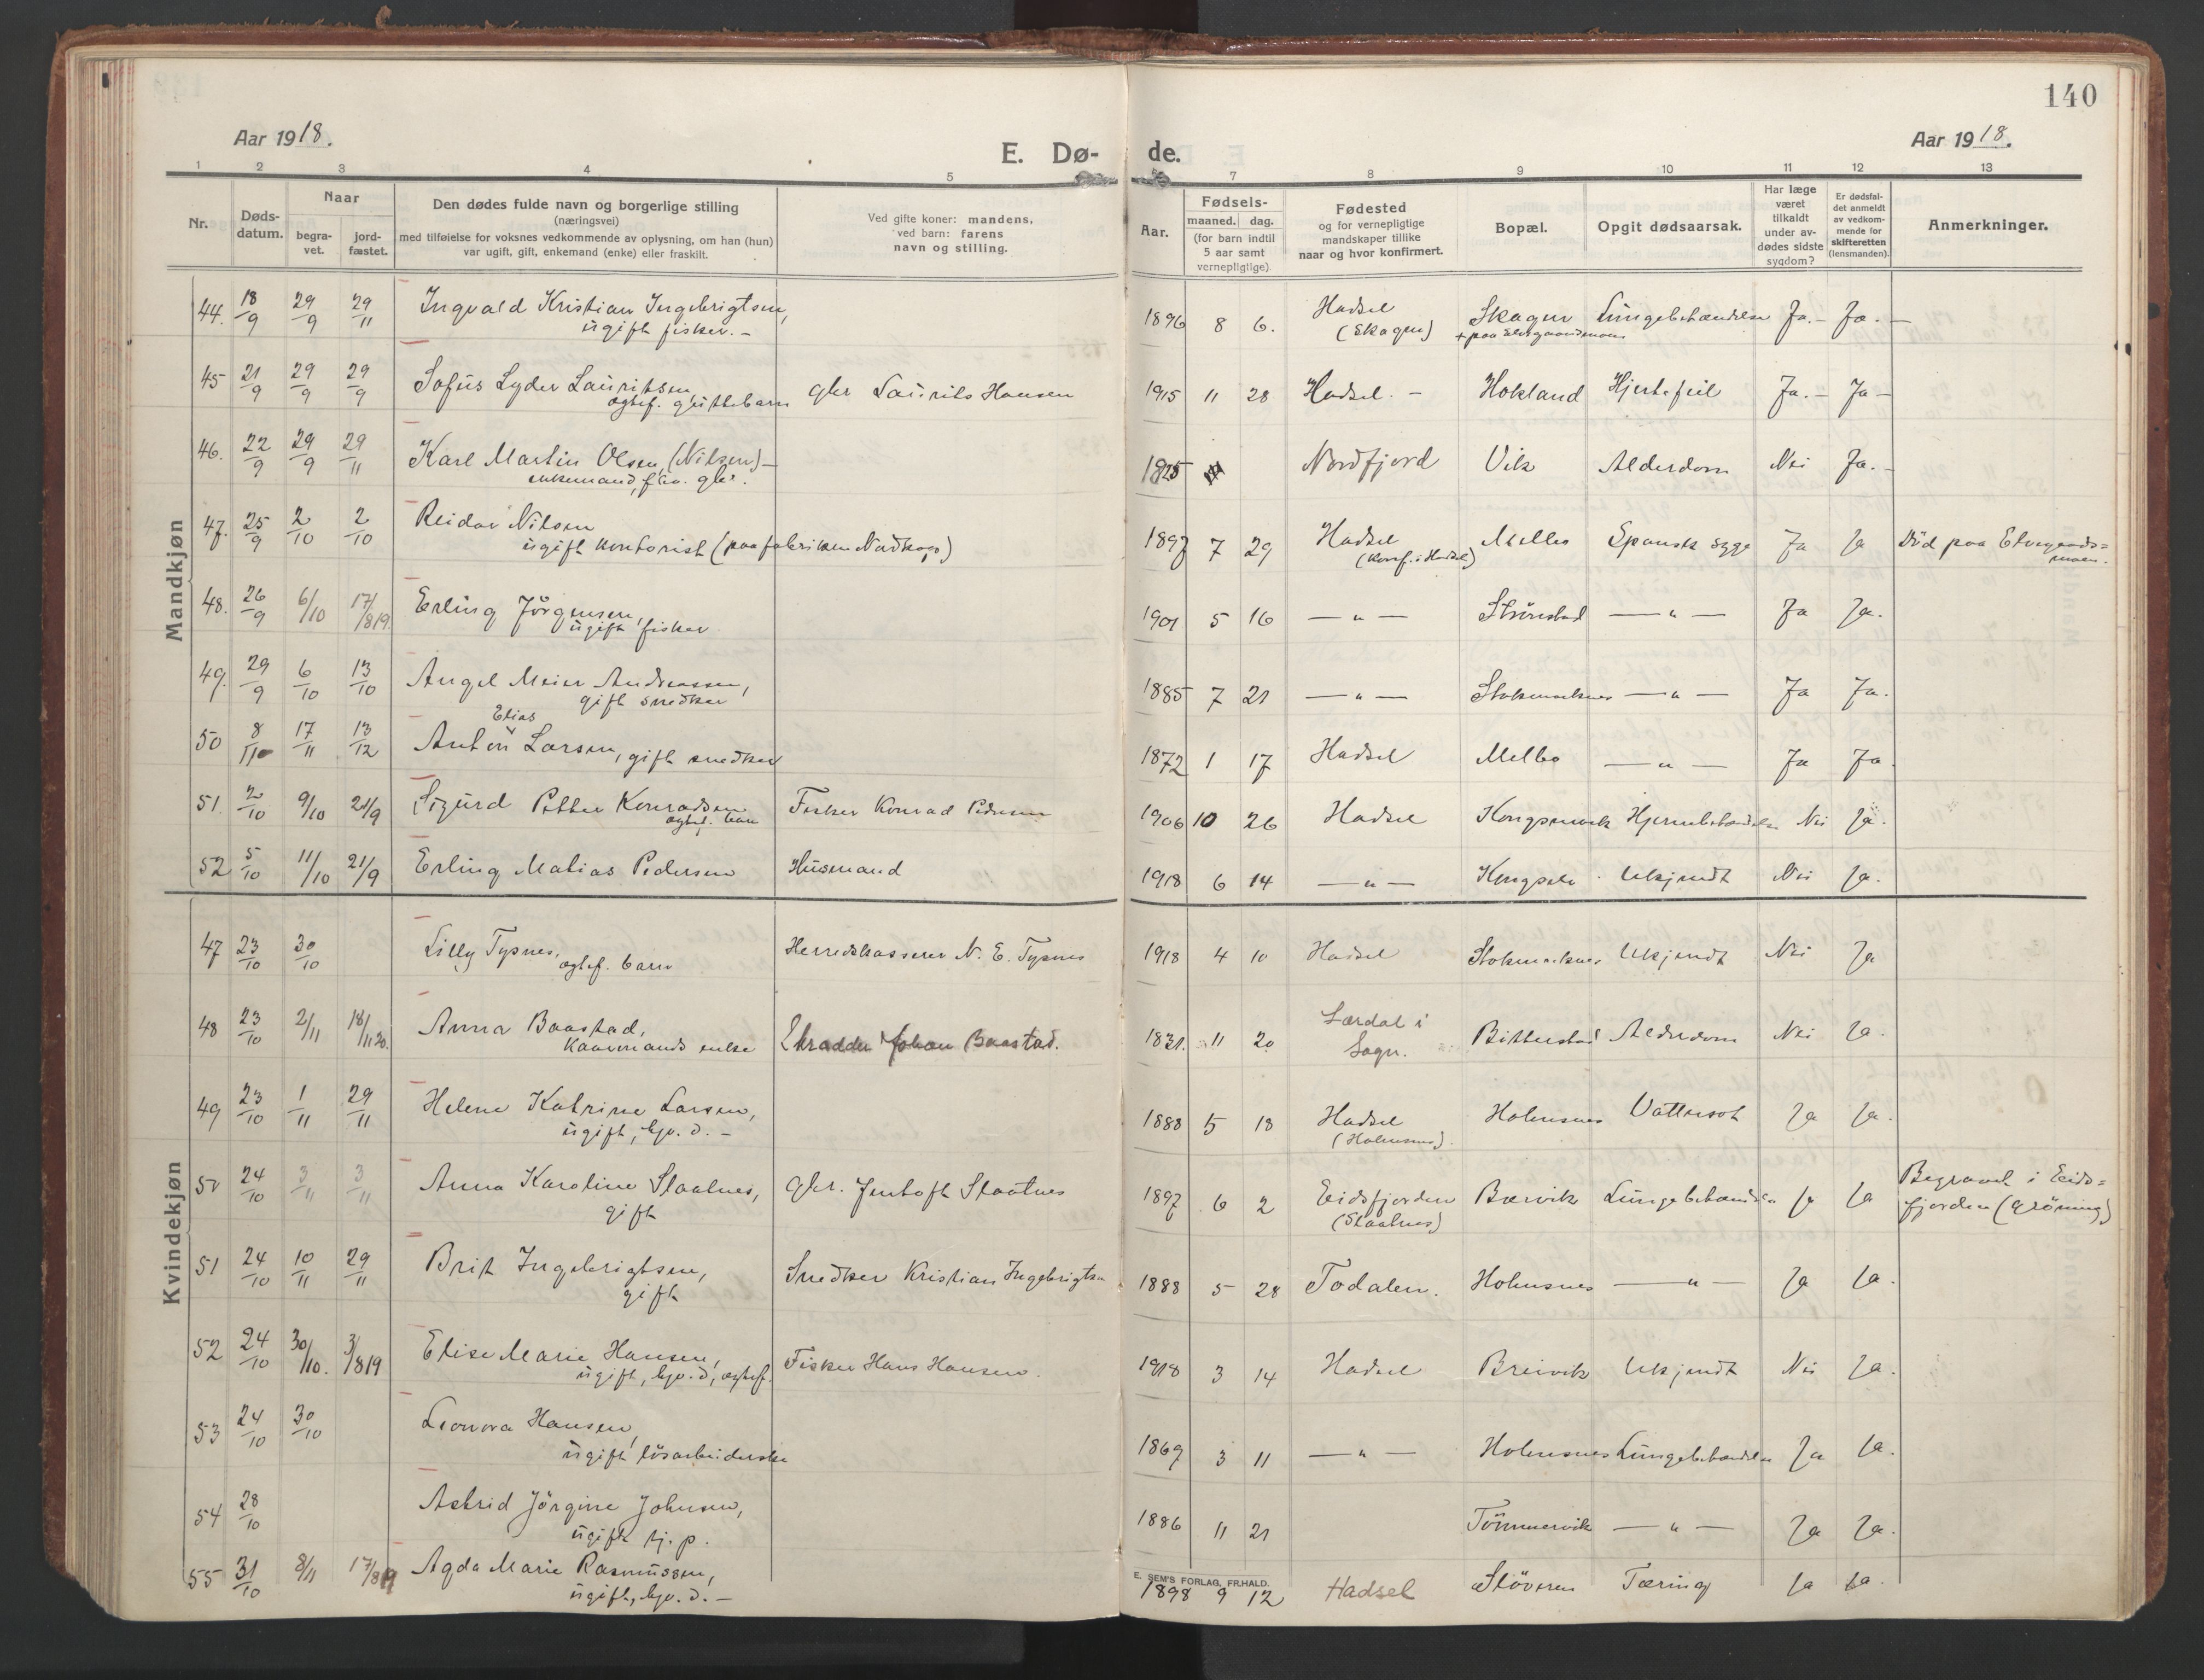 140
Aar 1918.
E. Dø-
de.
Aar 1918.
1 2 3 4 5 7 8 9 10 11 12 13
Nr.
Døds-
datum.
Naar
begra-
vet.
jord-
fæstet.
Den dødes fulde navn og borgerlige stilling
(næringsvei)
med tilføielse for voksnes vedkommende av oplysning, om han (hun)
var ugift, gift, enkemand (enke) eller fraskilt.
Ved gifte koner: mandens,
ved barn: farens
navn og stilling.
Aar.
Fødsels-
maaned. dag.
(for barn indtil
5 aar samt
vernepligtige).
Fødested
og for vernepligtige
mandskaper tillike
naar og hvor konfirmert.
Bopæl.
Opgit dødsaarsak.
Har læge
været
tilkaldt
under av-
dødes sidste
sygdom?
Er dødsfal-
det anmeldt
av vedkom-
mende for
skifteretten
(lensmanden).
Anmerkninger.
Mandkjøn
44. 18/9 29/9 29/11 Ingvald Kristian Ingebrigtsen, 1896 8 6. Hadsel Skagen Lungebetændelse Ja.- Ja.-
ugift fisker.- (Skagen)
45 21/9 29/9 29/9 Sofus Lyder Lauritsen, gbr Laurits Hansen 1915 11 28 Hadsel.- Hokland Hjertefeil Ja.- Ja-
egtef. guttebarn
46. 22/9 29/9 29/11 Karl Martin Olsen, (Nilsen)- 1825 Nordfjord Vik Alderdom Nei Ja.-
enkemand, fhv. gbr.
47. 25/9 2/10 2/10 Reidar Nilsen 1897 7 29 Hadsel Melbo Spansk syge Ja Ja Död paa Elvegaards=
ugift kontorist (paa fabrikken ) (konf. i Hadsel) moen.
48. 26/9 6/10 17/819. Erling Jörgensen, 1901 5 16 —"— —"— Ja Ja.
ugift fisker
49. 29/9 6/10 13/10 Angel Meier Andreassen, 1885 7 21 —"— Stokmarknes —"— Ja Ja.
gift snedker
Elias
50 8/10 17/11 13/12 Anton Larsen, gift snedker 1872 1 17 Hadsel Melbo —"— Ja Ja.
51. 2/10 9/10 21/9 Sigurd Petter Konradsen Fisker Konrad Pedersen 1906 10 26 Hadsel Hjernebetændelse Nei Ja.
egtef. barn
52 5/10 11/10 21/9 Erling Matias Pedersen Husmand 1918 6 14 —"— Ukjendt Nei Ja.
Kvindekjøn
47 23/10 30/10 Lilly Typnes, Herredskasserer N. E. Typnes 1918 4 10 Hadsel Stokmarknes Ukjendt Nei Ja
egtef. barn
48 23/10 2/11 18/1120. Anna Baastad, Skradder Johan Baastad. 1831. 11 20 Lærdal i Bitterstad Alderdom Nei Ja.
Kaarmands enke Sogn.
49 23/10 1/11 29/11 Helene Katrine Larsen, 1888 5 18 Hadsel Holmsnes Vattersot Ja Ja.
ugift, hjv. d.- (Holmsnes).
50 24/10 3/11 3/11 Anna Karoline Slaatnes, gbr. Jentoft Slaatnes 1897 6 2 Eidsfjorden Bervik Lungebetændelse Ja Ja Begravet i Eids=
gift (Slaatnes) fjorden (Gröning)
51 24/10 10/11 29/11 Brit Ingebrigtsen, Snedker Kristian Ingebrigtsen 1888 5 28 Todalen. Holmsnes —"— Ja Ja.
gift
52 24/10 30/10. 3/819 Elise Marie Hansen, Fisker Hans Hansen. 1918 3 14 Hadsel Breivik Ukjendt Nei Ja.
ugift, hjv. d, egtef.
53 24/10 30/10 Leonora Hansen, 1869 3 11 —"— Holmsnes Lungebetændelse Ja Ja.
ugift lösarbeiderske
54 28/10 Astrid Jörgine Johnsen, 1886 11 21 Tömmervik —"— Ja Ja.
ugift tj. p.
55 31/10 8/11 17/819 Agda Marie Rasmussen, 1898 9 12 Hadsel Slöveren Tæring Ja Ja.
ugift, hjv. d.-
E. SEM'S FORLAG, FR.HALD.